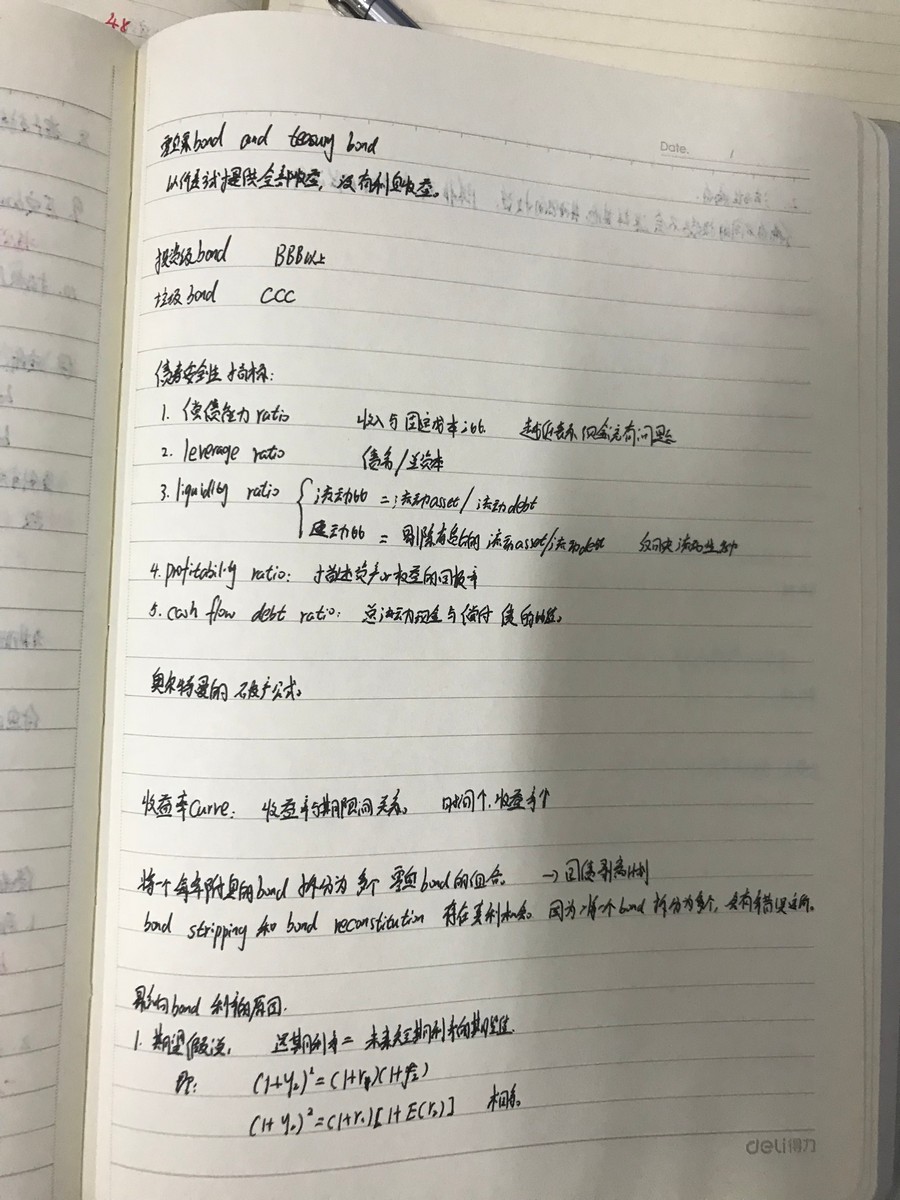 48
Date.
零息票bond and teasury bond
以价差试提供全部收益,没有利息收益。
投资级bond BBB以上
垃圾bond CCC
债券安全性指标:
1. 偿债能力ratio 收入与固定成本之比
2. leverage ratio 债务/总资本
3. liquidity ratio 流动比 = 流动asset/流动debt
速动比 = 剔除存货的流动asset/流动debt
4. profitability ratio: 描述资产or权益的回报率
5. cash flow debt ratio: 总流动现金与偿付债的比值。
奥尔特曼的破产公式。
收益率Curve: 收益率与期限间关系。 时间个,收益率个
将个每年附息的bond拆分为多个零息bond的组合。 →国债剥离计划
bond stripping 和 bond reconstitution 存在套利机会。 因为将一个bond拆分为多个,会有错误定价。
影响bond利率的原因.
1. 期望假说, 远期利率=未来短期利率的期望值.
即: (1+y₂)²=(1+r₁)(1+f₂)
(1+y₂)²=(1+r₁)[1+E(r₂)] 相等。
deli得力